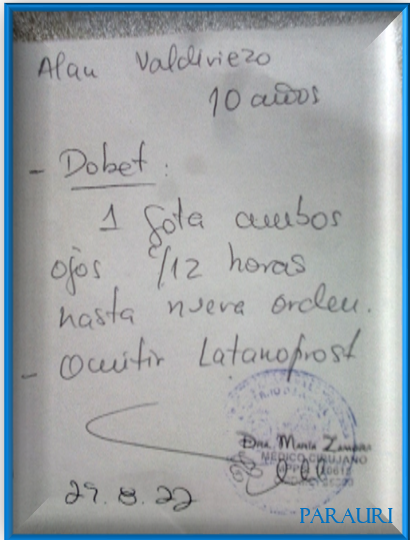 Alan Valdiviezo
10 años
- Dobet:
1 gota ambos
ojos c/12 horas
hasta nueva orden.
- Omitir Latanoprost
Dra. María
MÉDICO CIRUJANO
29.8.22
PARAURI